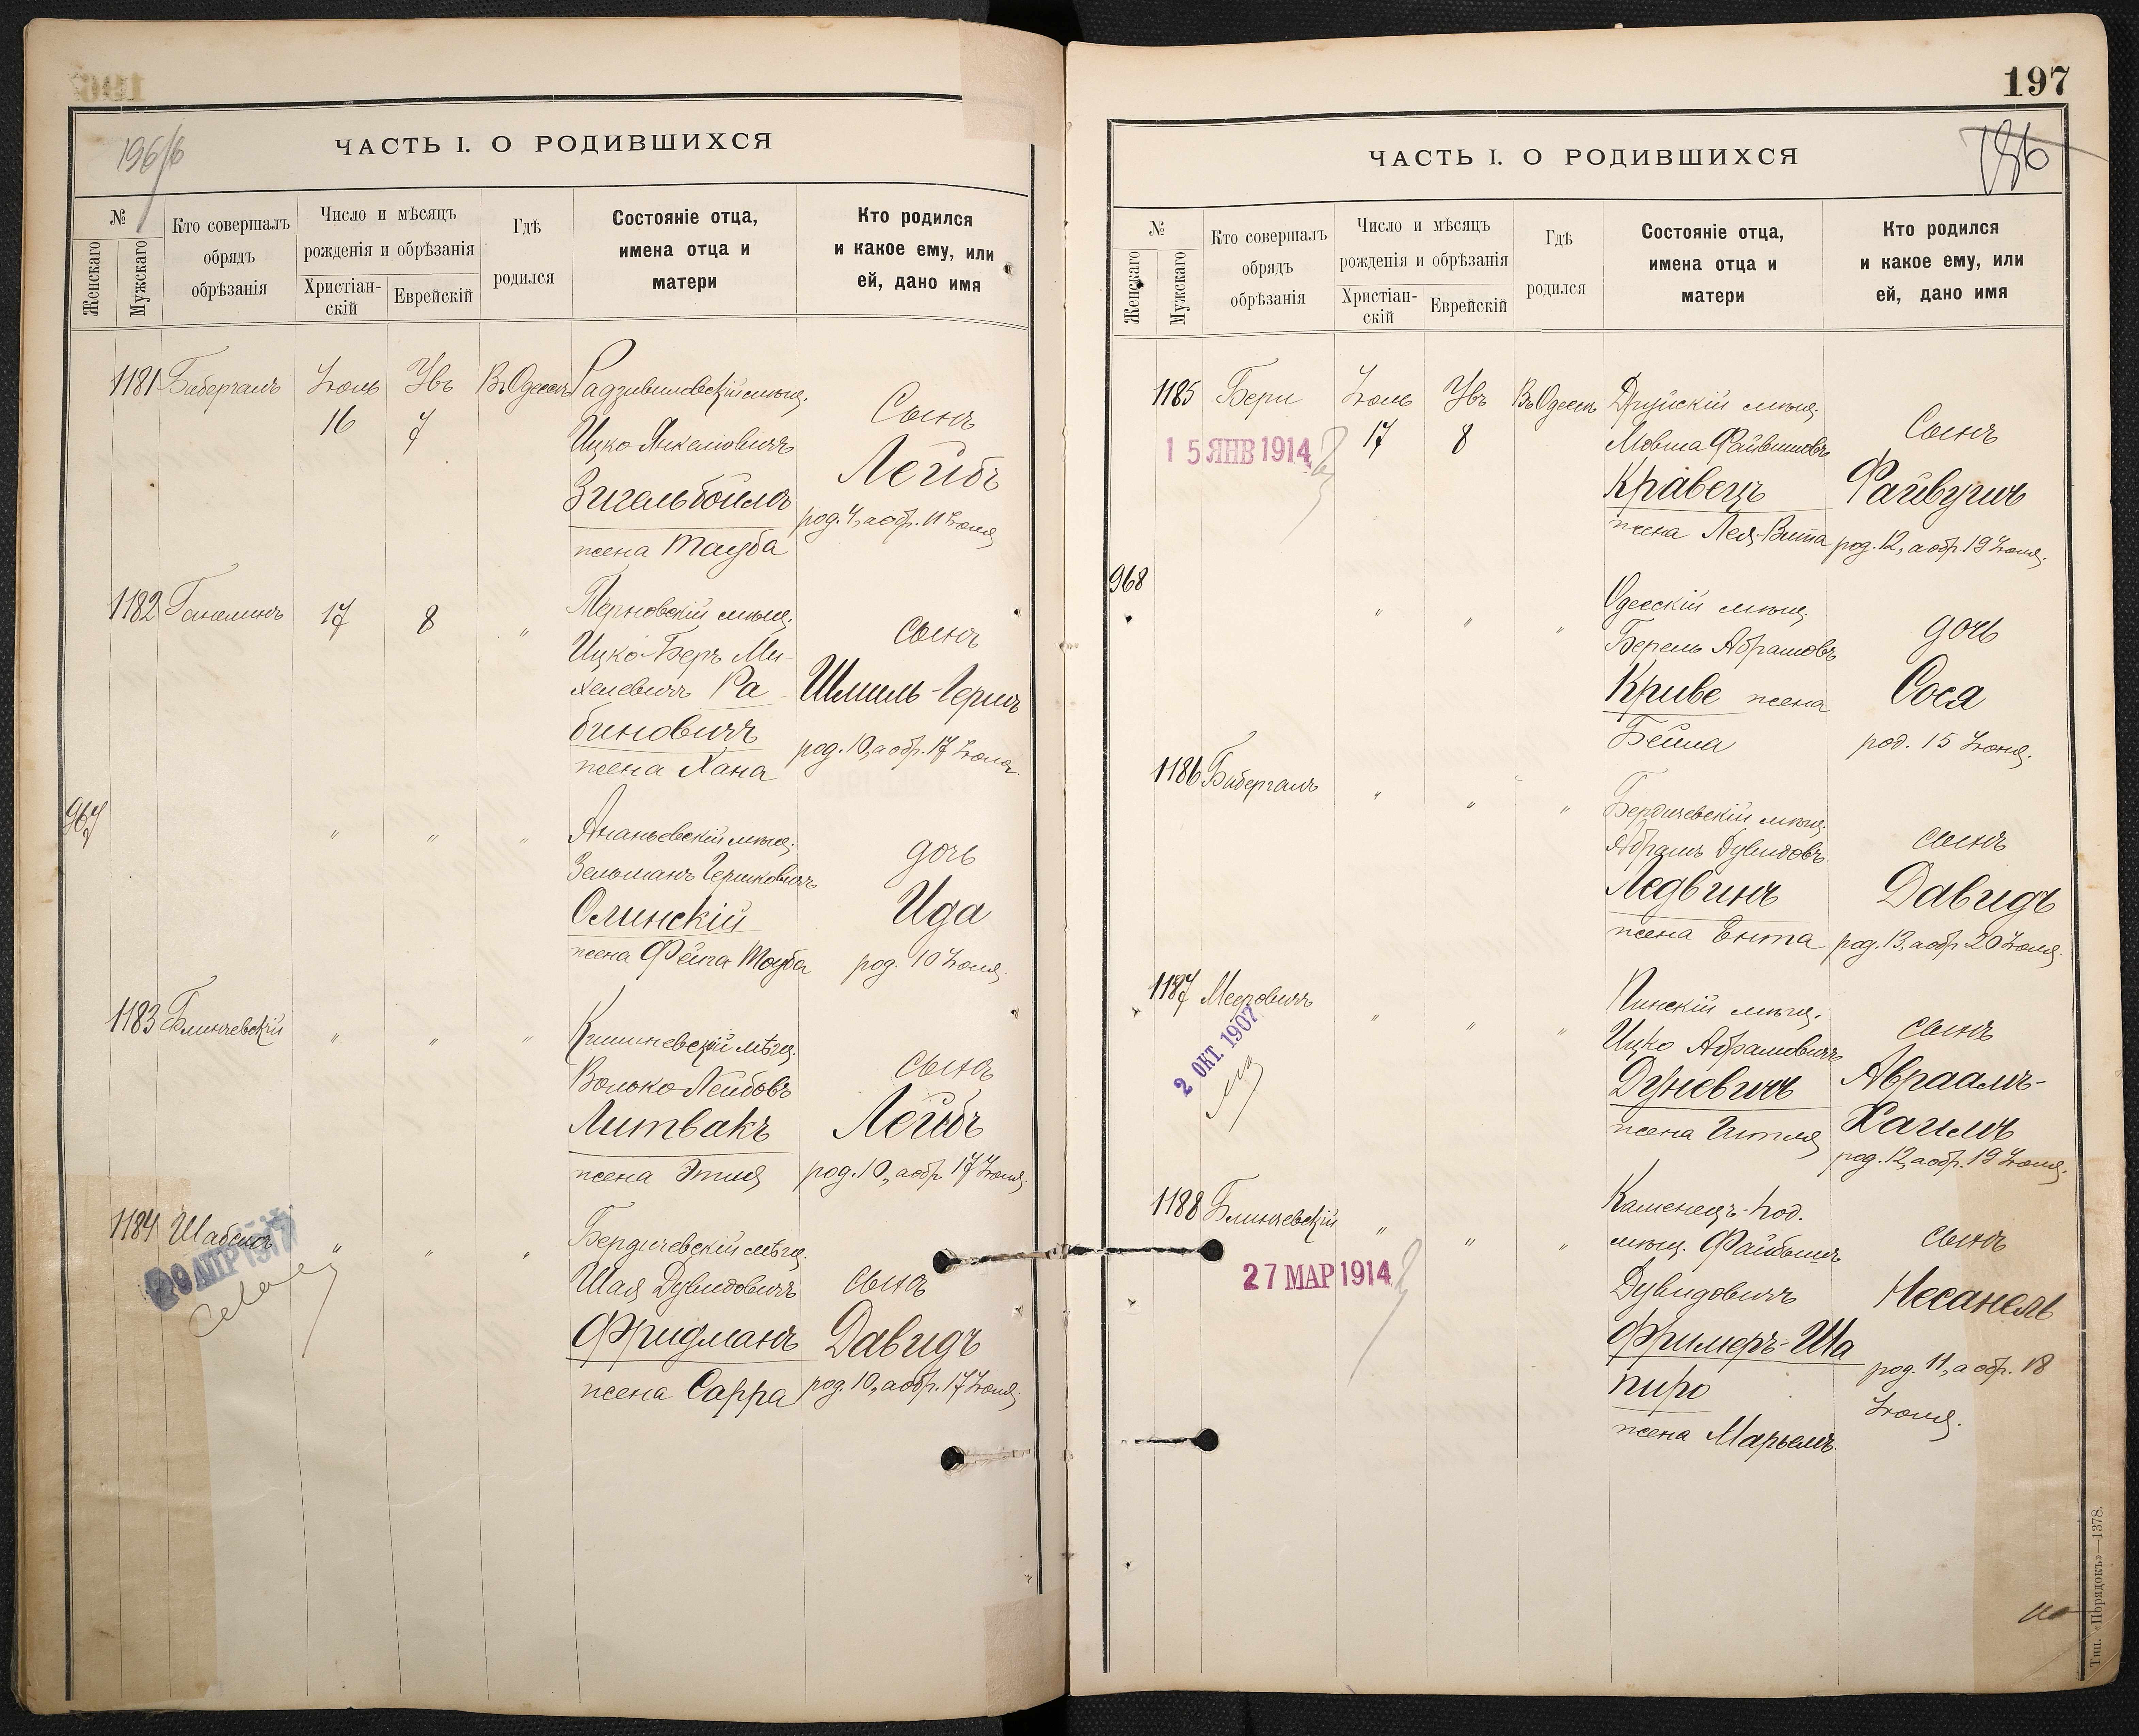 196/б
ЧАСТЬ I. О РОДИВШИХСЯ
№
Женскаго
Мужскаго
Кто совершалъ
обрядъ
обрѣзанія
Число и мѣсяцъ
рожденія и обрѣзанія
Христіан-
скій
Еврейскій
Гдѣ
родился
Состояніе отца,
имена отца и
матери
Кто родился
и какое ему, или
ей, дано имя
1181 Бибергалъ
Іюль
16
Увъ
7
Въ Одессѣ
Радзивиловскій мѣщ.
Ицко Янкелiовичъ
Зигельбоймъ
жена Тауба
Сынъ
Лейбъ
род. 4, а обр. 11 Іюля
1182
17
8
"
мѣщ.
Ицко-Беръ Ми-
хелевичъ Ра
биновичъ
жена Хана
Сынъ
Шмиль-Гершъ
род. 10, а обр. 17 Іюля.
967
"
"
"
Ананьевскій мѣщ.
Зельманъ Гершковичъ
Олинскій
жена Фейга-Тауба
дочь
Ида
род. 10 Іюля.
1183 Блинчевскій
"
"
"
Кишиневскій мѣщ.
Волько Лейбовъ
Литвакъ
жена Этля
сынъ
Лейбъ
род. 10, а обр. 17 Іюля.
1184
29 АПР 1917
"
"
"
Бердичевскій мѣщ.
Шая Дувидовичъ
Фридманъ
жена Сарра
сынъ
Давидъ
род. 10, а обр. 17 Іюля.
197
196
ЧАСТЬ I. О РОДИВШИХСЯ
№
Женскаго
Мужскаго
Кто совершалъ
обрядъ
обрѣзанія
Число и мѣсяцъ
рожденія и обрѣзанія
Христіан-
скій
Еврейскій
Гдѣ
родился
Состояніе отца,
имена отца и
матери
Кто родился
и какое ему, или
ей, дано имя
1185 Бери
15 ЯНВ 1914
Іюль
17
Увъ
8
Въ Одессѣ
Друйскій мѣщ.
Мовша Файвишовъ
Кравецъ
жена Лея-Вита
Сынъ
Файвушъ
род. 12, а обр. 19 Іюля.
968
"
"
"
Одесскій мѣщ.
Берель Абрамовъ
Криве жена
Бейла
дочь
Сося
род. 15 Іюня.
1186 Бибергалъ
"
"
"
Бердичевскій мѣщ.
Абрамъ Дувидовъ
Ледвинъ
жена Ента
сынъ
Давидъ
род. 13, а обр. 20 Іюля.
1187 Мееровичъ
2 ОКТ. 1907
"
"
"
Пинскій мѣщ.
Ицко Абрамовичъ
Дуневичъ
жена Гитля
сынъ
Авраамъ-
Хаимъ
род. 12, а обр. 19 Іюля.
1188 Блинчевскій
27 МАР 1914
"
"
"
Каменецъ-Под.
мѣщ. Файбишъ
Дувидовичъ
Фримеръ-Ша
пиро
жена Марьемъ
сынъ
Несанель
род. 11, а обр. 18
Іюля.
Тип. «Порядокъ»—1378.